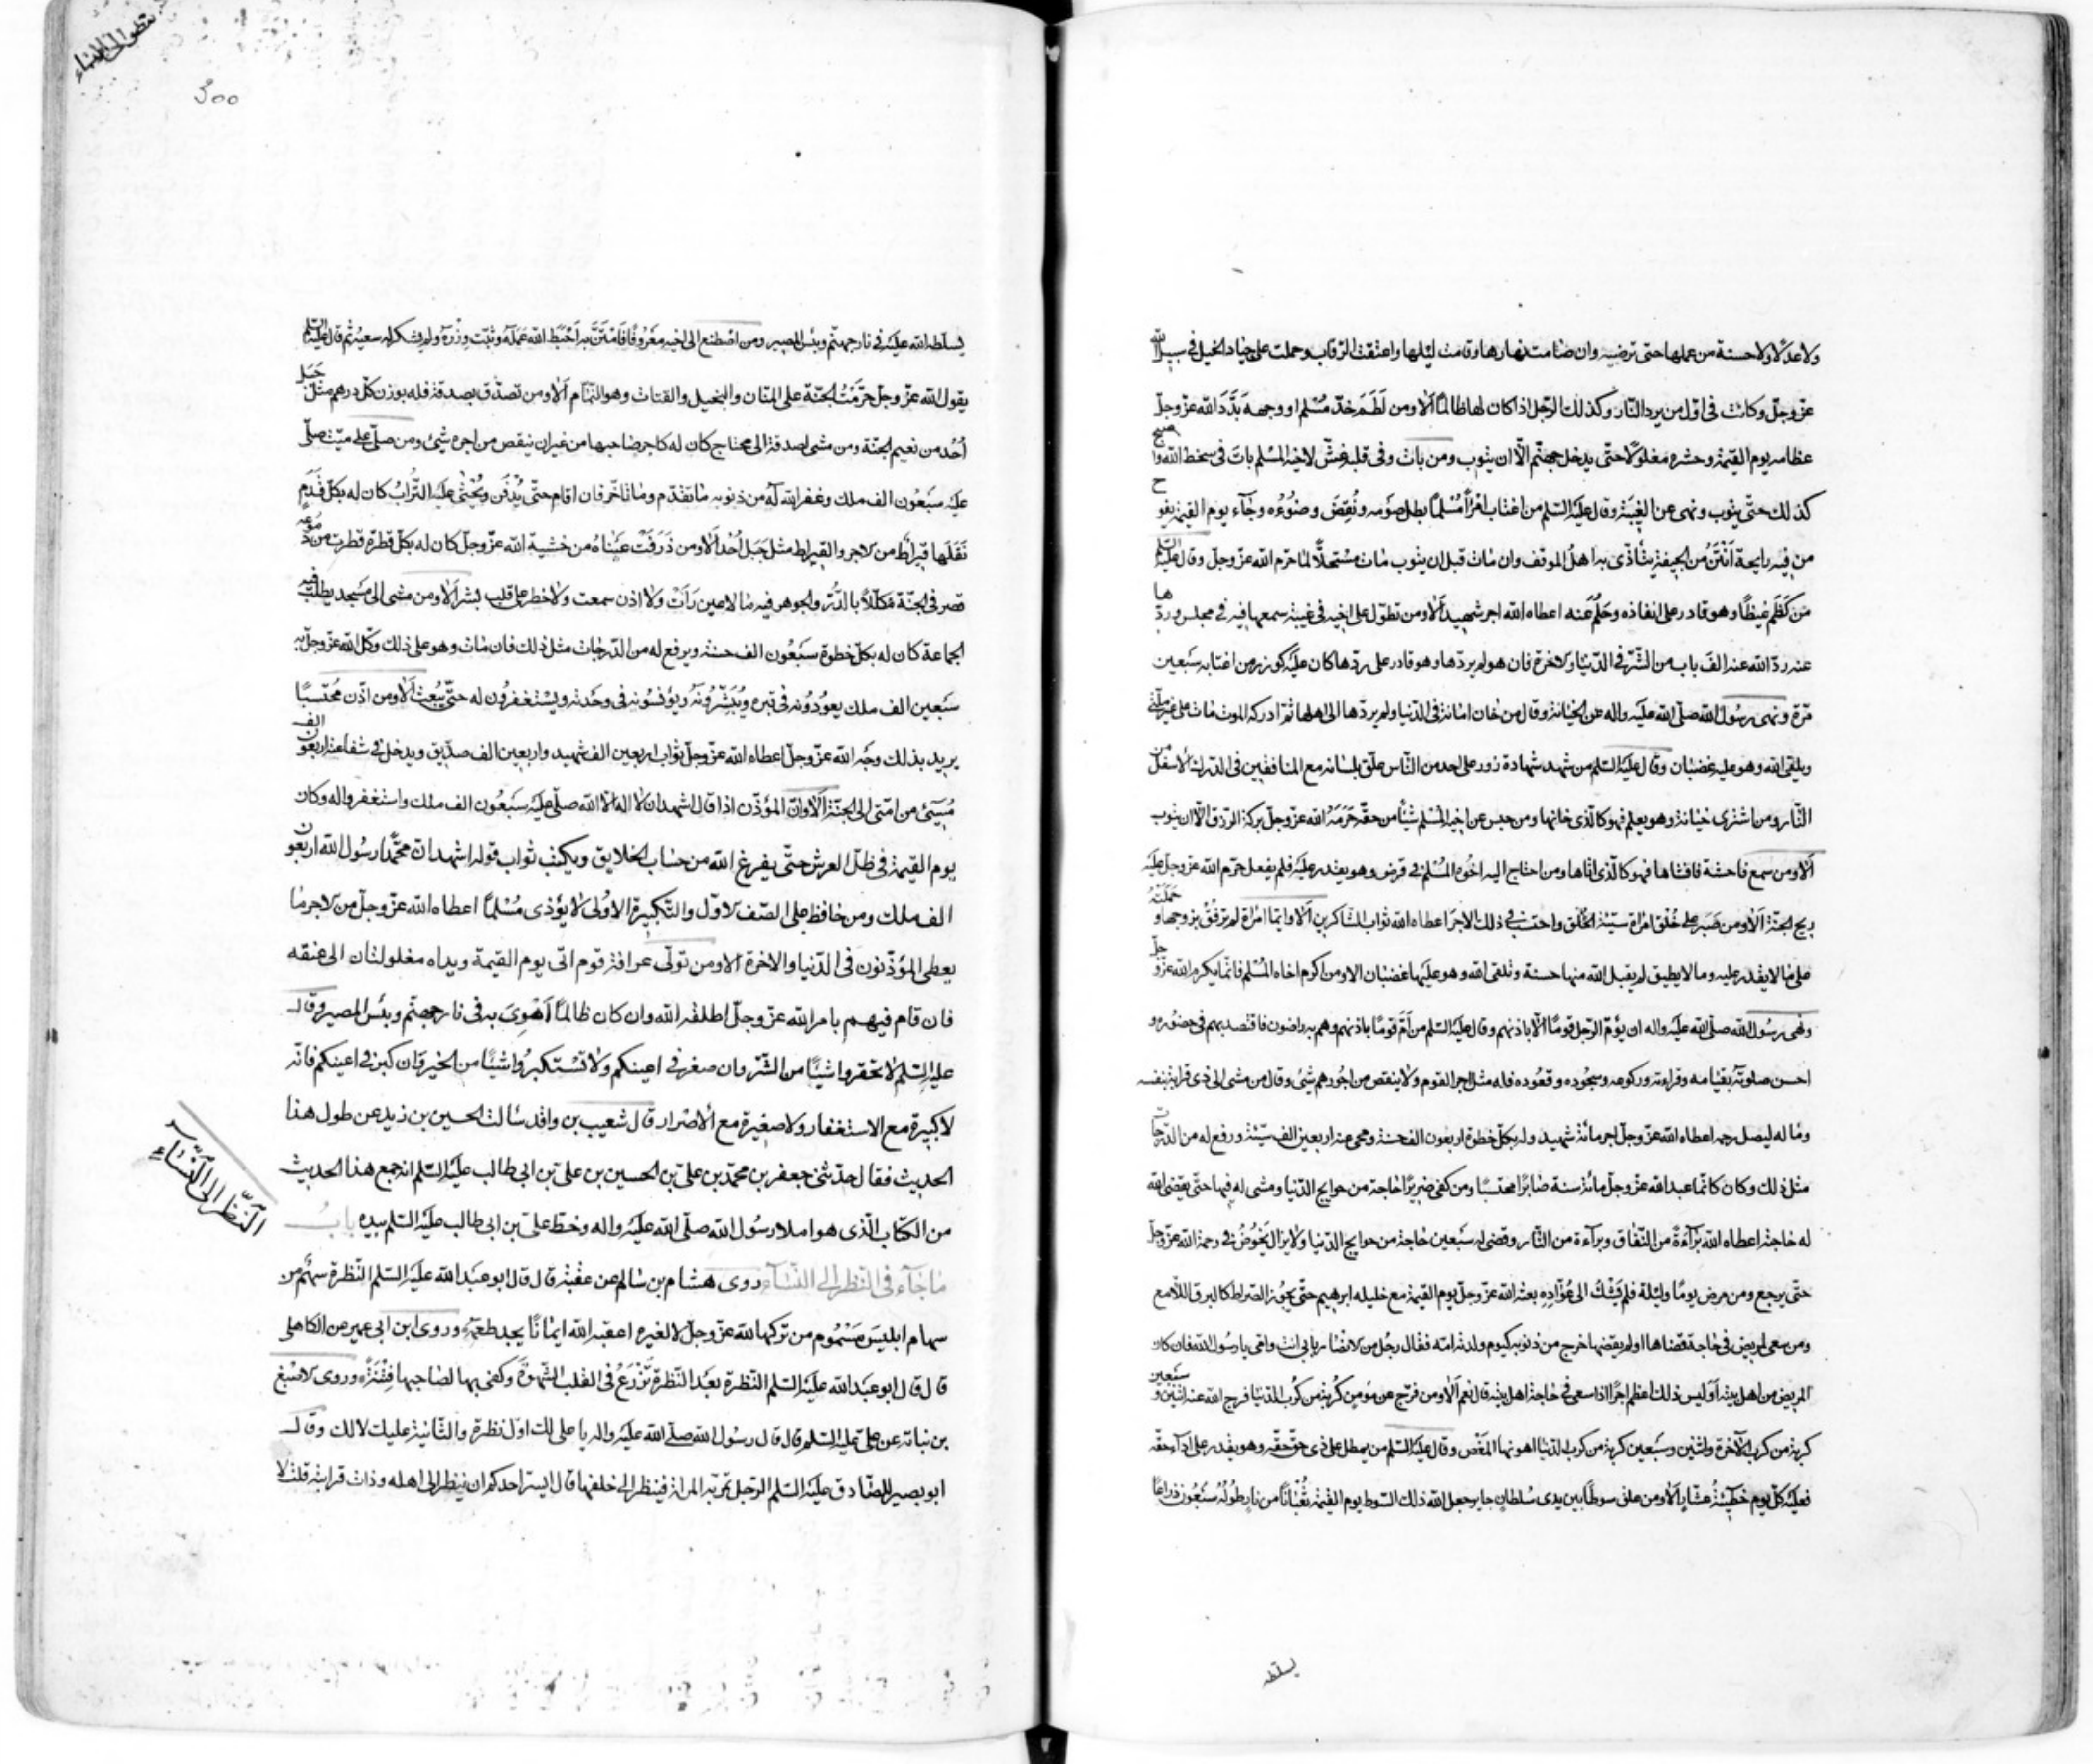 ولا عدلا ولا حسنة من عملها حتى ترضيه وان صامت نهارها وقامت ليلها واعتقت الرقاب وحملت على جياد الخيل في سبيل الله
عزّ وجلّ وكانت في اوّل من يرد النّار وكذلك الرّجل اذا كان لها ظالمًا ألا ومن لَطَمَ خدّ مُسْلم او وجهه بَدَّدَ الله عزّ وجلّ
عظامه يوم القيمة وحشره مغلولًا حتّى يدخل جهنّم الّا ان يتوب ومن بات وفي قلبه غشّ لاخيه المسلم بات في سخط الله واصبح
كذلك حتّى يتوب ونهى عن الغيبة وقال عليه السّلم من اغتاب امْرأً مُسْلمًا بطل صومه ونُقِضَ وضوءه وجآء يوم القيمة يفوح
من فيه رايحة اَنْتَنُ من الجيفة يتأذّى به اهل الموقف وان مات قبل ان يتوب مات مستحلًّا لما حرّم الله عزّ وجلّ وقال عليه السّلم
مَن كَظَمَ غيظًا وهو قادر على انفاذه وحَلُمَ عَنه اعطاه الله اجر شهيد ألا ومن تطوّل على اخيه في غيبة سمعها فيه في مجلس وردّها
عنه ردّ الله عنه الف باب من الشّرّ في الدّنيا والاخرة فان هو لم يردّها وهو قادر على ردّها كان عليه كوزر من اغتابه سَبعين
مَرّة ونهى رسول الله صلّى الله عليه واله عن الخيانة وقال من خان امانة في الدّنيا ولم يردّها الى اهلها ثمّ ادركه الموت مات على غير ملّتي
ويلقى الله وهو عليه غضبان وقال عليه السّلم من شهد شهادة زور على احد من النّاس علّق بلسانه مع المنافقين في الدّرك الاسفل من
النّار ومن اشترى خيانة وهو يعلم فهو كالّذي خانها ومن حبس عن اخيه المسلم شيئًا من حقّه حَرَمَهُ الله عزّ وجلّ بركة الرّزق الّا ان يتوب
ألا ومن سمع فاحشة فافشاها فهو كالّذي اتاها ومن احتاج اليه اخوه المُسْلم في قرض وهو يقدر عليه فلم يفعل حرّم الله عزّ وجلّ عليه
ريح الجنّة ألا ومن صَبَر على خُلْق امرأة سيّئة الخُلْق واحتسب في ذلك الاجر اعطاه الله ثواب الشّاكرين ألا وايّما امرأة لم ترفق بزوجها وحَمَلَتْهُ
على ما لا يقدر عليه وما لا يطيق لم يقبل الله منها حسنة وتلقى الله وهو عليها غضبان الا ومن اكرم اخاه المُسْلم فانّما يكرم الله عزّ وجلّ
ونهى رسول الله صلّى الله عليه واله ان يؤمّ الرّجل قومًا الّا باذنهم وقال عليه السّلم من اَمّ قومًا باذنهم وهم به راضون فاقتصد بهم في حضوره و
احسن صلوته بقيامه وقراءته وركوعه وسجوده وقعوده فله مثل اجر القوم ولا ينقص من اجورهم شئ وقال من مشى الى ذي قرابة بنفسه
وماله ليصل رحمه اعطاه الله عزّ وجلّ اجر مائة شهيد وله بكلّ خطوة اربعون الف حسنة ومحي عنه اربعين الف سيّئة ورفع له من الدّرجات
مثل ذلك وكان كانّما عبد الله عزّ وجلّ مائة سنة صابرًا محتسبًا ومن كفى ضريرًا حاجة من حوايج الدّنيا ومشى له فيها حتّى يقضي الله
له حاجته اعطاه الله بَرآءَةً من النّفاق وبرآءة من النّار وقضى له سَبعين حاجة من حوايج الدّنيا ولا يزال يَخُوضُ في رحمة الله عزّ وجلّ
حتّى يرجع ومن مرض يومًا وليلة فلم يَشْكُ الى عُوّادِهِ بعثه الله عزّ وجلّ يوم القيمة مع خليله ابرهيم حتّى يجوز الصّراط كالبرق اللّامع
ومن سعى لمريض في حاجة قضاها او لم يقضها خرج من ذنوبه كيوم ولدته امّه فقال رجل من الانصار بابي انت وامّي يا رسول الله فان كان
المريض من اهل بيته اَوَليس ذلك اعظم اجرًا اذا سعى في حاجة اهل بيته قال نعم ألا ومن فرّج عن مؤمن كُربة من كُرَب الدّنيا فرج الله عنه اثنين وسَبعين
كربة من كرب الآخرة واثنين وسَبعين كربة من كرب الدّنيا اهونها المَغْص وقال عليه السّلم من يمطل على ذي حقّ حقّه وهو يقدر على ادآء حقّه
فعليه كلّ يوم خَطيئةُ عشّارٍ ألا ومن علّق سوطًا بين يدي سُلطانٍ جاير جعل الله ذلك السّوط يوم القيمة ثُعْبَانًا من نارٍ طُولُهُ سَبْعُون ذراعًا
يسلّطه
نظر الى النساء
300
يسلّطه الله عليه في نار جهنّم وبئس المصير ومن اصْطنع الى اخيه مَعْرُوفًا فَامْتَنَّ به اَحْبَطَ الله عَمَلَهُ وثَبّت وِزْرَهُ ولم يشكر له سعيه ثم قال عليه السّلم
يقول الله عزّ وجلّ حَرَّمْتُ الجنّة على المنّان والبخيل والقتات وهو النّمّام ألا ومن تصدّق بصدقة فله بوزن كلّ درهم مثل جَبَل
اُحُد من نعيم الجنّة ومن مشى بصدقة الى محتاج كان له كاجر صاحبها من غير ان ينقص من اجره شئ ومن صلّى على ميّت صلّى
عليه سَبعُون الف ملك وغفر الله لَهُ من ذنوبه ما تقدّم وما تأخّر فان اقام حتّى يُدْفَن ويُحْثى عليه التّرابُ كان له بكلّ قَدَمٍ
نَقَلَها قيراط من الاجر والقيراط مثل جَبَل اُحُد ألا ومن ذَرَفَتْ عَيْناهُ من خشية الله عزّ وجلّ كان له بكلّ قطرة قطرت من دُمُوعه
قصر في الجنّة مُكلّلًا بالدّرّ والجوهر فيه ما لا عين رَأَتْ ولا اذن سمعت ولا خطر على قلب بشر ألا ومن مشى الى مَسْجد يطلب فيه
الجماعة كان له بكلّ خطوة سَبْعُون الف حسنة ويرفع له من الدّرجات مثل ذلك فان مات وهو على ذلك وكّل الله عزّ وجلّ به
سَبعين الف ملك يعودُونه في قبره ويُبَشِّرُونَهُ ويؤنسُونه في وحَدته ويسْتغفرون له حتّى يُبْعث ألا ومن اذّن مُحْتَسِبًا
يريد بذلك وجه الله عزّ وجلّ اعطاه الله عزّ وجلّ ثواب اربعين الف شهيد واربعين الف صدّيق ويدخل في شفاعته اربعون الف
مُسِيئ من امّتي الى الجنّة ألا وانّ المؤذّن اذا قال اشهد ان لا اله الا الله صلّى عليه سَبْعُون الف ملك واستغفروا له وكان
يوم القيمة في ظلّ العرش حتّى يفرغ الله من حساب الخلايق ويكتب ثواب قوله اشهد انّ محمّدا رسول الله اربعون
الف ملك ومن حافظ على الصّف الاوّل والتّكبيرة الاُولى لا يؤذي مُسْلمًا اعطاه الله عزّ وجلّ من الاجر ما
يعطى المؤذّنون في الدّنيا والاخرة الا ومن تولّى عرافة قوم اتى يوم القيمة ويداه مغلولتان الى عنقه
فان قام فيهم بامر الله عزّ وجلّ اطلقه الله وان كان ظالمًا اَهْوَى به في نار جهنّم وبئس المصير وقال
عليه السّلم لا تحقروا شيئًا من الشّرّ وان صغر في اعينكم ولا تَسْتَكبِرُوا شيئًا من الخير وان كبر في اعينكم فانّه
لا كبيرة مع الاستغفار ولا صغيرة مع الاصْرار قال شعيب بن واقد سالت الحسين بن زيد عن طول هذا
الحديث فقال حدّثني جعفر بن محمّد بن علي بن الحسين بن علي بن ابي طالب عليه السّلم انه جمع هذا الحديث
من الكتاب الّذي هو املا رسول الله صلّى الله عليه واله وخطّ علي بن ابي طالب عليه السّلم بيده بابُ
ما جآء في النّظر الى النّسآء روى هشام بن سالم عن عقبة قال قال ابو عبد الله عليه السّلم النّظرة سهم من
سهام ابليس مَسْمُوم من تركها لله عزّ وجلّ لا لغيره اعقبه الله ايمانًا يجد طعمه وروى ابن ابي عمير عن الكاهلي
قال قال ابو عبد الله عليه السّلم النّظرة بعد النّظرة تَزْرَعُ في القلب الشّهوة وكفى بها لصاحبها فِتْنَةً وروى الاصْبغ
بن نباته عن علي عليه السّلم قال قال رسول الله صلّى الله عليه واله يا علي لك اوّل نظرة والثّانية عليك لا لك وقال
ابو بصير للصّادق عليه السّلم الرّجل تمرّ به المراة فينظر الى خلفها قال ايسرّ احدكم ان ينظر الى اهله وذات قرابته قلت لا
النّظر الى النّساءِ